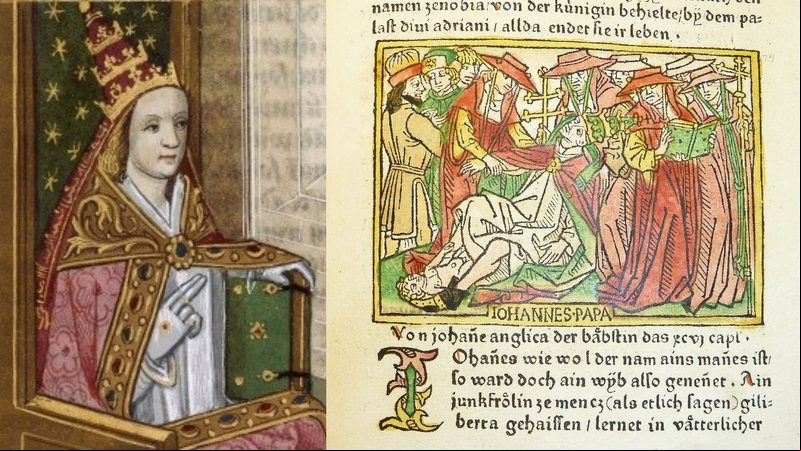 namen zenobia/von der künigin behielte/bÿ dem pa-
laſt diui adriani/allda endet ſie ir leben.
IOHANNES·PAPA
Von johañe anglica der bäbſtin das xcvj capi.
IOhañes wie wol der nam ains mañes iſt/
ſo ward doch ain wÿb alſo geneñet. Ain
junkfrölin ze mencz(als etlich ſagen)gili-
berta gehaiſſen/lernet in vätterlicher